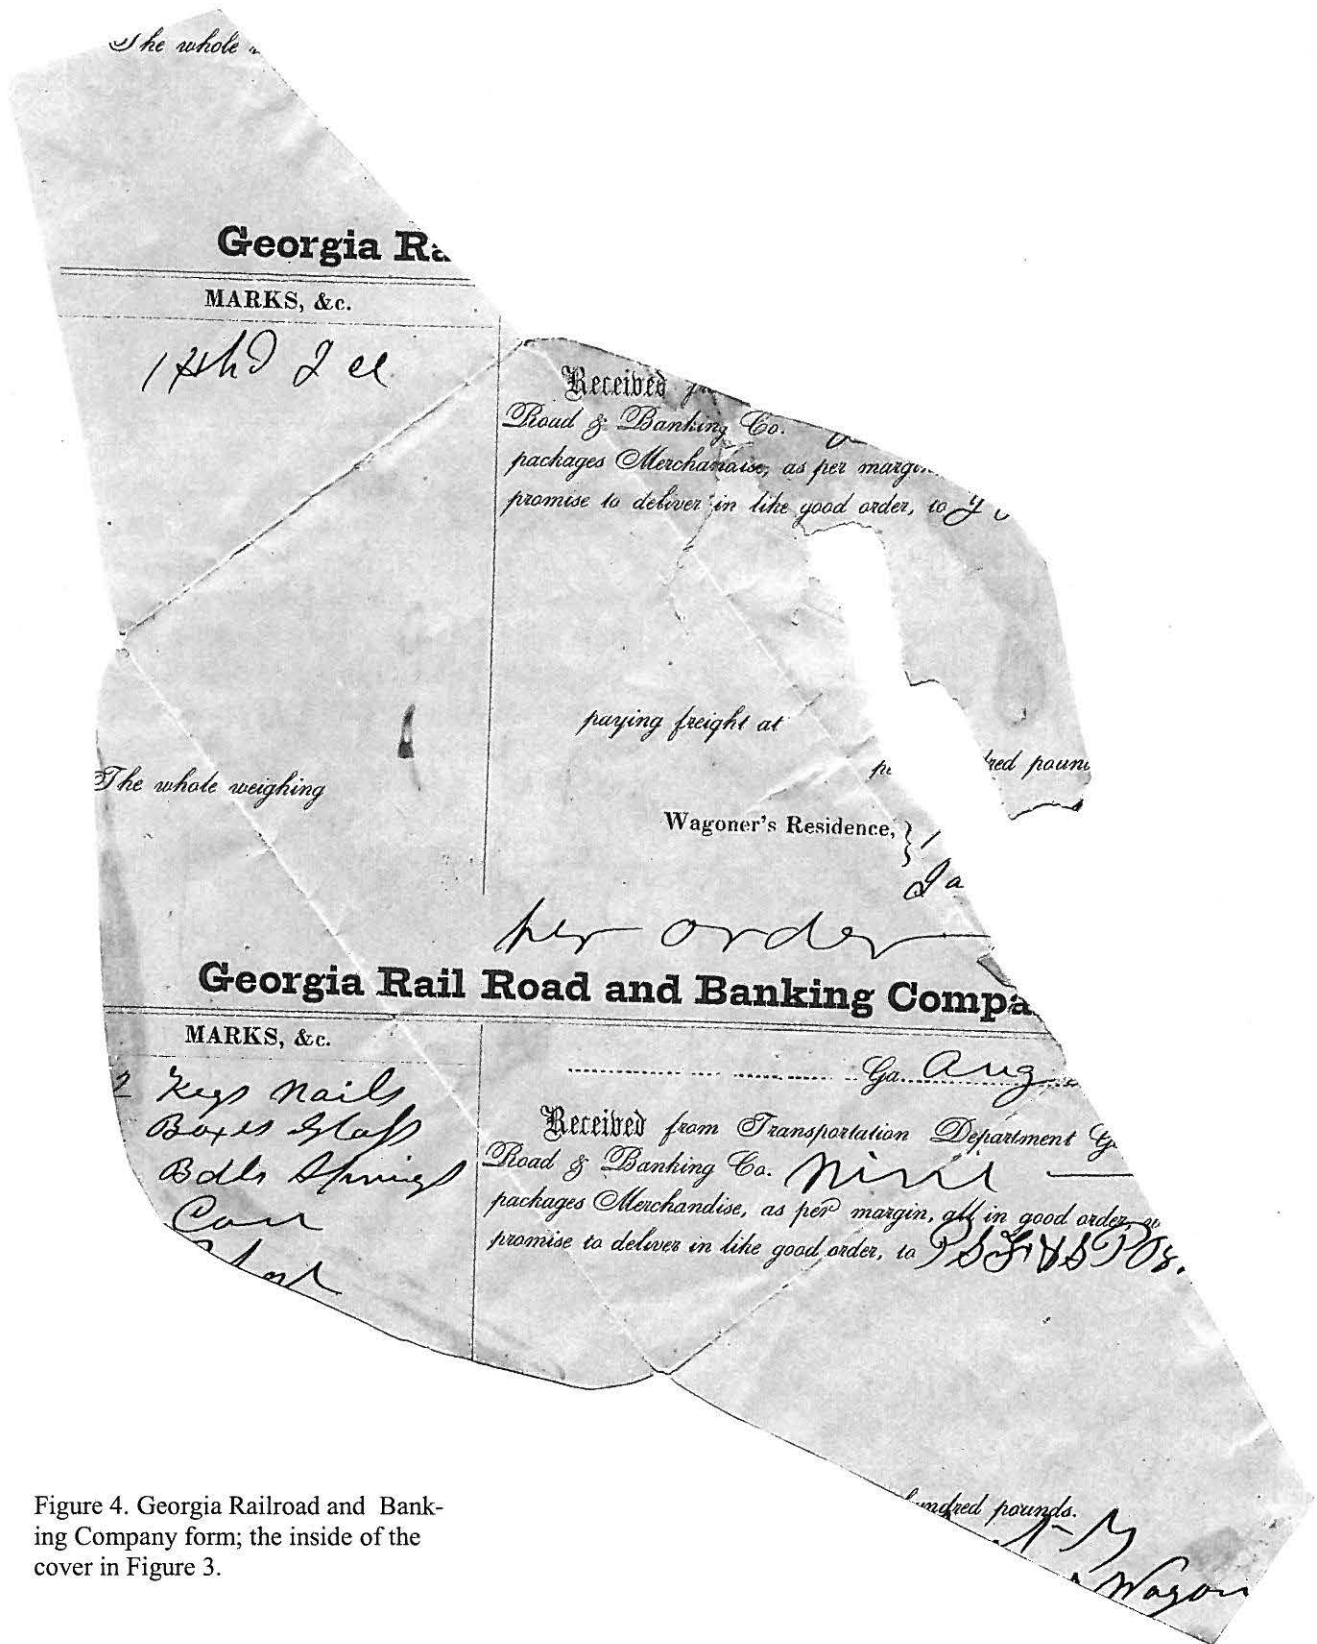 The whole
Georgia Ra
MARKS, &c.
1 Hhd
Received
Road & Banking Co.
packages Merchandise, as per margin
promise to deliver in like good order, to
paying freight at
The whole weighing
red poun
Wagoner's Residence,
per order
Georgia Rail Road and Banking Compa
MARKS, &c.
Ga. Aug
2 Kegs Nails
Received from Transportation Department G
Boxes Glass
Road & Banking Co. Nine
Bdls Springs
packages Merchandise, as per margin, all in good order,
promise to deliver in like good order, to
undred pounds.
Wagon
Figure 4. Georgia Railroad and Bank-
ing Company form; the inside of the
cover in Figure 3.